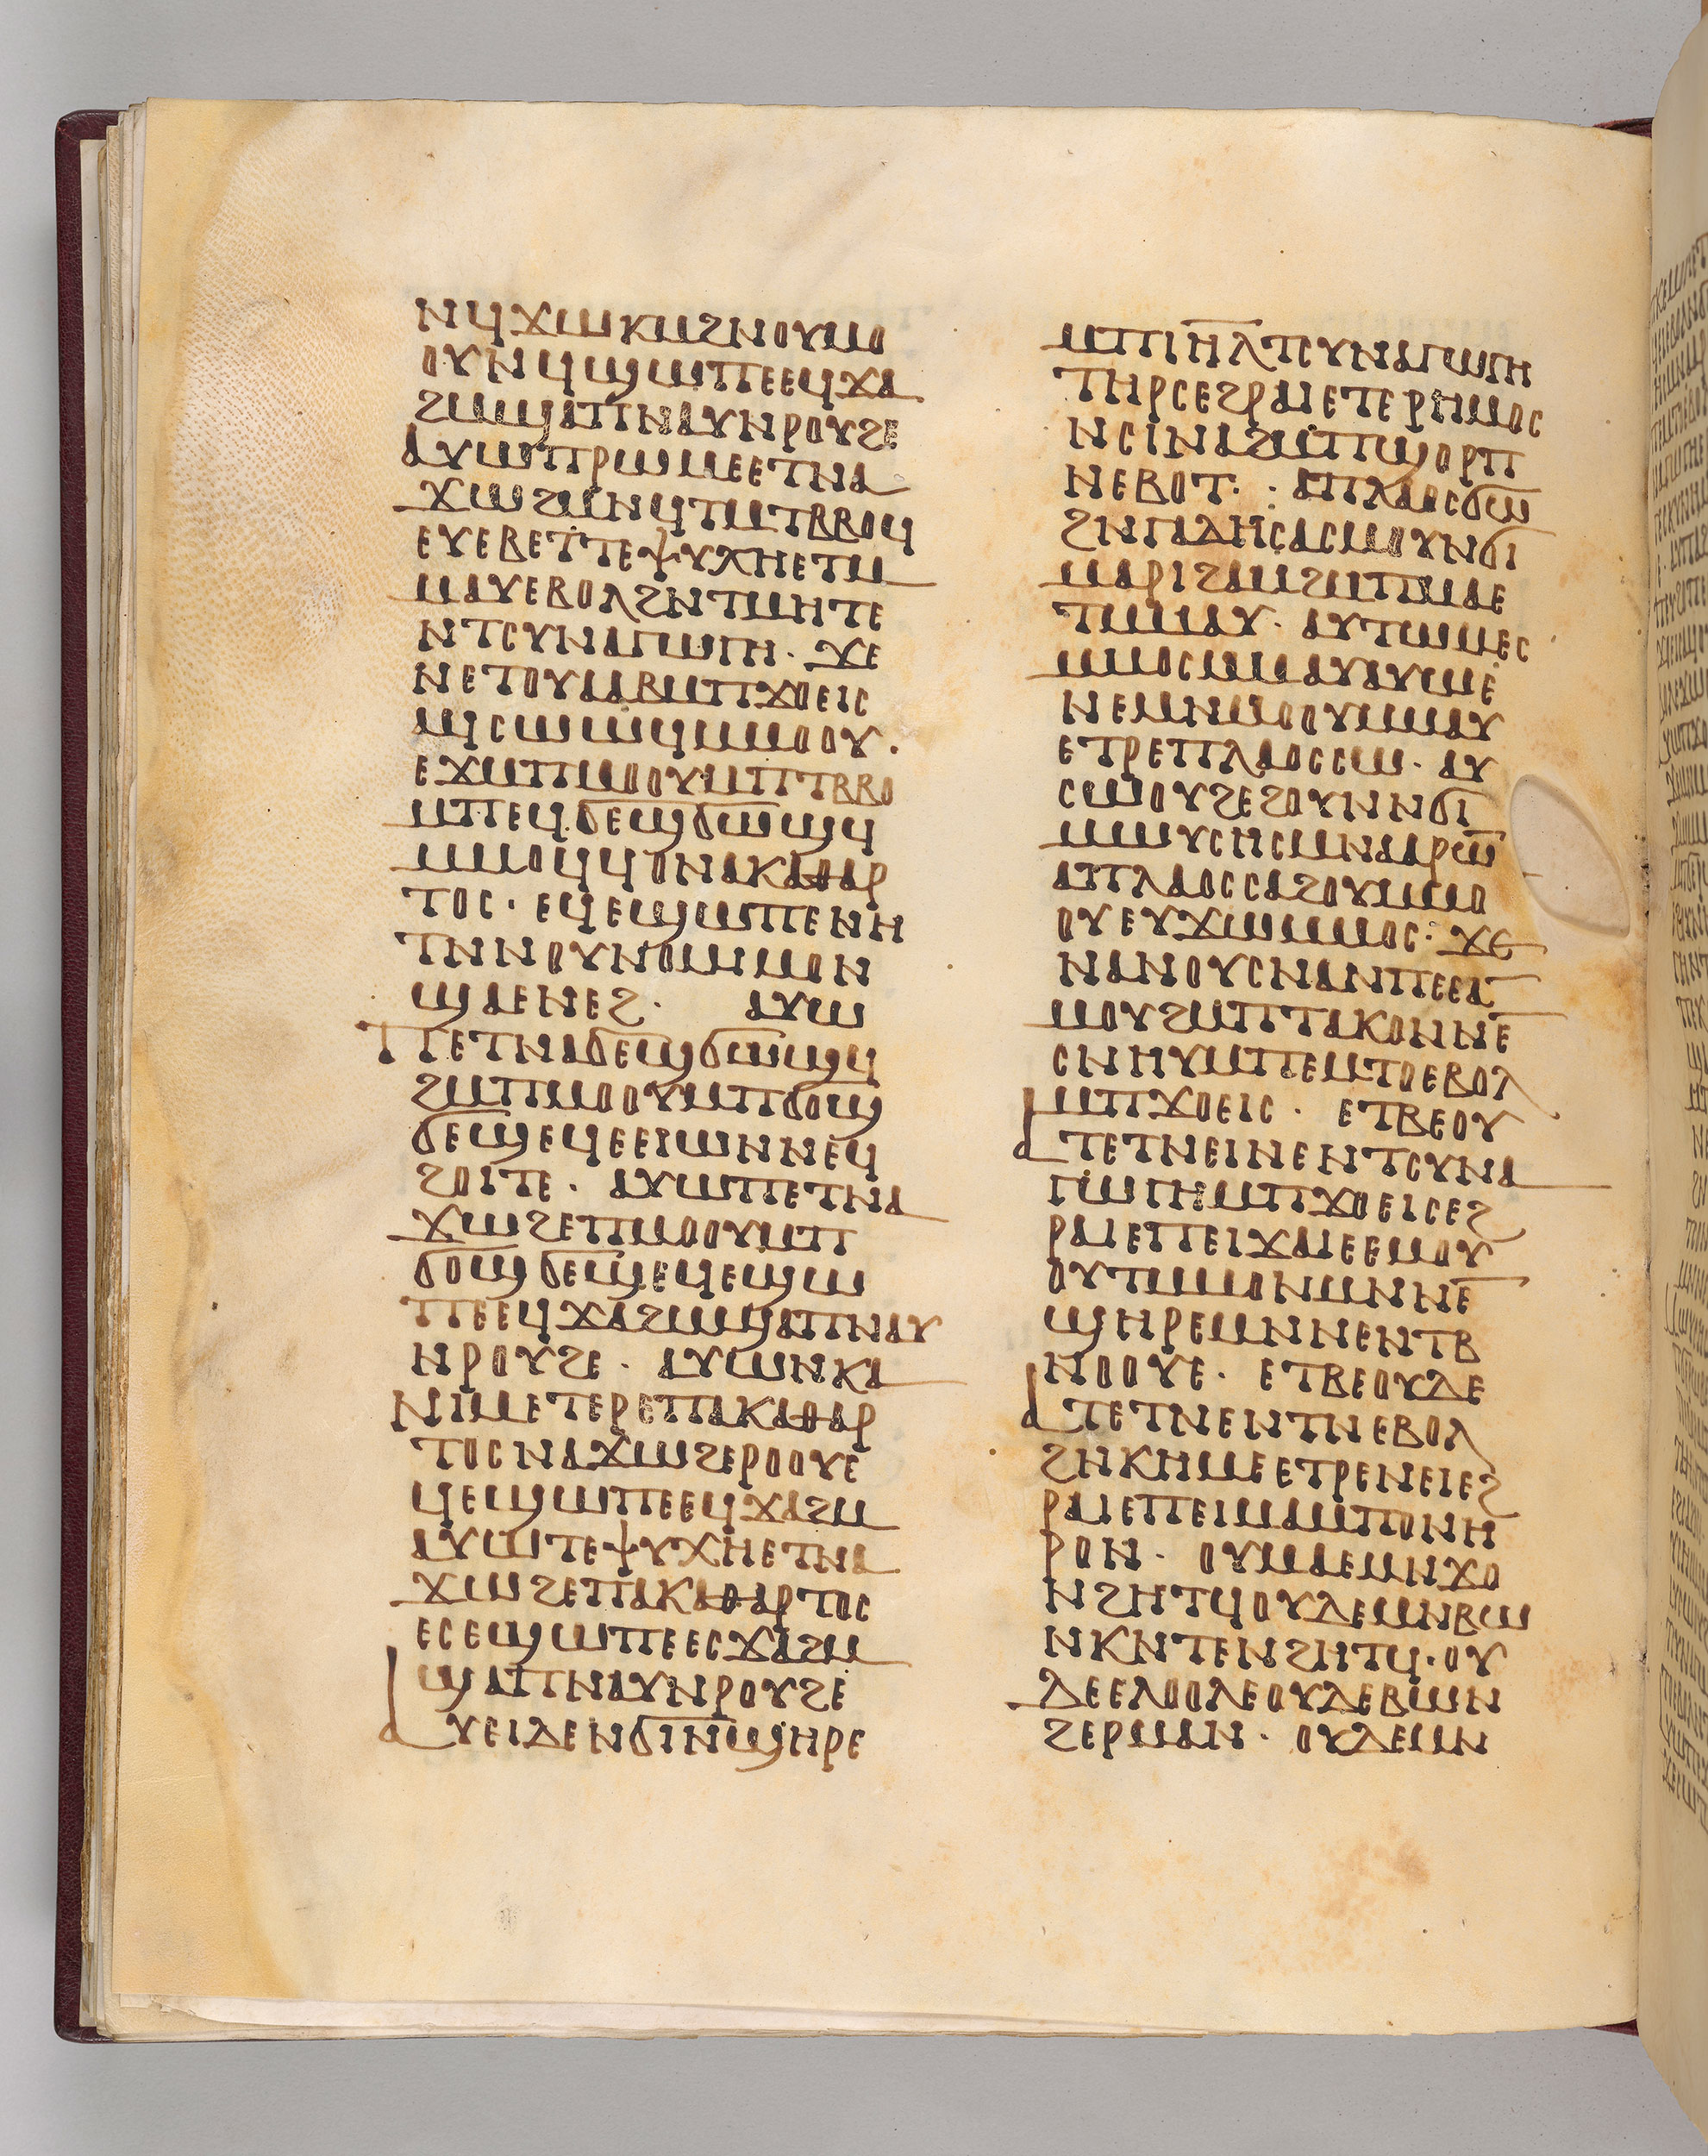 ⲛϥϫⲱⲕⲙϩⲛⲟⲩⲙⲟ
ⲟⲩⲛϥϣⲱⲡⲉⲉϥϫⲁ
ϩⲙϣⲁⲡⲛⲁⲩⲛⲣⲟⲩϩⲉ
ⲁⲩⲱⲡⲣⲱⲙⲉⲉⲧⲛⲁ
ϫⲱϩⲙⲛϥⲧⲙⲧⲃⲃⲟϥ
ⲉⲩⲉⲃⲉⲧⲧⲉⲯⲩⲭⲏⲉⲧⲙ
ⲙⲁⲩⲉⲃⲟⲗϩⲛⲧⲙⲏⲧⲉ
ⲛⲧⲥⲩⲛⲁⲅⲱⲅⲏ· ϫⲉ
ⲛⲉⲧⲟⲩⲁⲁⲃⲙⲡϫⲟⲉⲓⲥ
ⲁϥⲥⲱⲱϥⲙⲙⲟⲟⲩ·
ⲉϫⲙⲡⲙⲟⲟⲩⲙⲡⲧⲃⲃⲟ
ⲙⲡⲉϥϭⲉϣϭⲱϣϥ
ⲙⲙⲟϥϥⲟⲛⲁⲕⲁⲑⲁⲣ
ⲧⲟⲥ· ⲉϥⲉϣⲱⲡⲉⲛⲏ
ⲧⲛⲛⲟⲩⲛⲟⲙⲓⲙⲟⲛ
ϣⲁⲉⲛⲉϩ· ⲁⲩⲱ
ⲡⲉⲧⲛⲁϭⲉϣϭⲱϣϥ
ϩⲙⲡⲙⲟⲟⲩⲙⲡϭⲟϣ
ϭⲉϣⲉϥⲉⲉⲓⲱⲛⲛⲉϥ
ϩⲟⲓⲧⲉ· ⲁⲩⲱⲡⲉⲧⲛⲁ
ϫⲱϩⲉⲡⲙⲟⲟⲩⲙⲡ
ϭⲟϣϭⲉϣⲉϥⲉϣⲱ
ⲡⲉⲉϥϫⲁϩⲙϣⲁⲡⲛⲁⲩ
ⲛⲣⲟⲩϩⲉ· ⲁⲩⲱⲛⲕⲁ
ⲛⲓⲙⲉⲧⲉⲣⲉⲡⲁⲕⲁⲑⲁⲣ
ⲧⲟⲥⲛⲁϫⲱϩⲉⲣⲟⲟⲩⲉ
ϥⲉϣⲱⲡⲉⲉϥϫⲁϩⲙ
ⲁⲩⲱⲧⲉⲯⲩⲭⲏⲉⲧⲛⲁ
ϫⲱϩⲉⲡⲁⲕⲁⲑⲁⲣⲧⲟⲥ
ⲉⲥⲉϣⲱⲡⲉⲉⲥϫⲁϩⲙ
ϣⲁⲡⲛⲁⲩⲛⲣⲟⲩϩⲉ
ⲁⲩⲉⲓⲇⲉⲛϭⲓⲛϣⲏⲣⲉ
ⲙⲡⲓⲏⲗⲧⲥⲩⲛⲁⲅⲱⲅⲏ
ⲧⲏⲣⲥⲉϩⲣⲁⲓⲉⲧⲉⲣⲏⲙⲟⲥ
ⲛⲥⲓⲛⲁϩⲙⲡϣⲟⲣⲡ
ⲛⲉⲃⲟⲧ· : ⲁⲡⲗⲁⲟⲥϭⲱ
ϩⲛⲅⲁⲇⲏⲥⲁⲥⲙⲟⲩⲛϭⲓ
ⲙⲁⲣⲓϩⲁⲙϩⲙⲡⲙⲁⲉ
ⲧⲙⲙⲁⲩ· ⲁⲩⲧⲱⲙⲉⲥ
ⲙⲙⲟⲥⲙⲙⲁⲩⲁⲩⲱⲙⲉ
ⲛⲉⲙⲛⲙⲟⲟⲩⲙⲙⲁⲩ
ⲉⲧⲣⲉⲡⲗⲁⲟⲥⲥⲱ· ⲁⲩ
ⲥⲱⲟⲩϩⲉϩⲟⲩⲛⲛϭⲓ
ⲙⲱⲩⲥⲏⲥⲙⲛⲁⲁⲣⲱ
ⲁⲡⲗⲁⲟⲥⲥⲁϩⲟⲩⲙⲙⲟ
ⲟⲩⲉⲩϫⲱⲙⲙⲟⲥ· ϫⲉ
ⲛⲁⲛⲟⲩⲥⲛⲁⲛⲡⲉⲉⲁ
ⲙⲟⲩϩⲙⲡⲧⲁⲕⲟⲛⲛⲉ
ⲥⲛⲏⲩⲙⲡⲉⲙⲧⲟⲉⲃⲟⲗ
ⲙⲡϫⲟⲉⲓⲥ· ⲉⲧⲃⲉⲟⲩ
ⲁⲧⲉⲧⲛⲉⲓⲛⲉⲛⲧⲥⲩⲛⲁ
ⲅⲱⲅⲏⲙⲡϫⲟⲉⲓⲥⲉϩ
ⲣⲁⲓⲉⲡⲉⲓϫⲁⲓⲉⲉⲙⲟⲩ
ⲟⲩⲧⲙⲙⲟⲛⲙⲛⲛⲉ
ϣⲏⲣⲉⲙⲛⲛⲉⲛⲧⲃ
ⲛⲟⲟⲩⲉ· ⲉⲧⲃⲉⲟⲩⲇⲉ
ⲁⲧⲉⲧⲛⲉⲛⲧⲛⲉⲃⲟⲗ
ϩⲛⲕⲏⲙⲉⲉⲧⲣⲉⲛⲉⲓⲉϩ
ⲣⲁⲓⲉⲡⲉⲓⲙⲁⲙⲡⲟⲛⲏ
ⲣⲟⲛ· ⲟⲩⲙⲁⲉⲙⲛϫⲟ
ⲛϩⲏⲧϥⲟⲩⲇⲉⲙⲛⲃⲱ
ⲛⲕⲛⲧⲉⲛϩⲏⲧϥ·ⲟⲩ
ⲇⲉⲉⲗⲟⲟⲗⲉⲟⲩⲇⲉⲃⲱⲛ
ϩⲉⲣⲙⲁⲛ· ⲟⲩⲇⲉⲙⲛ